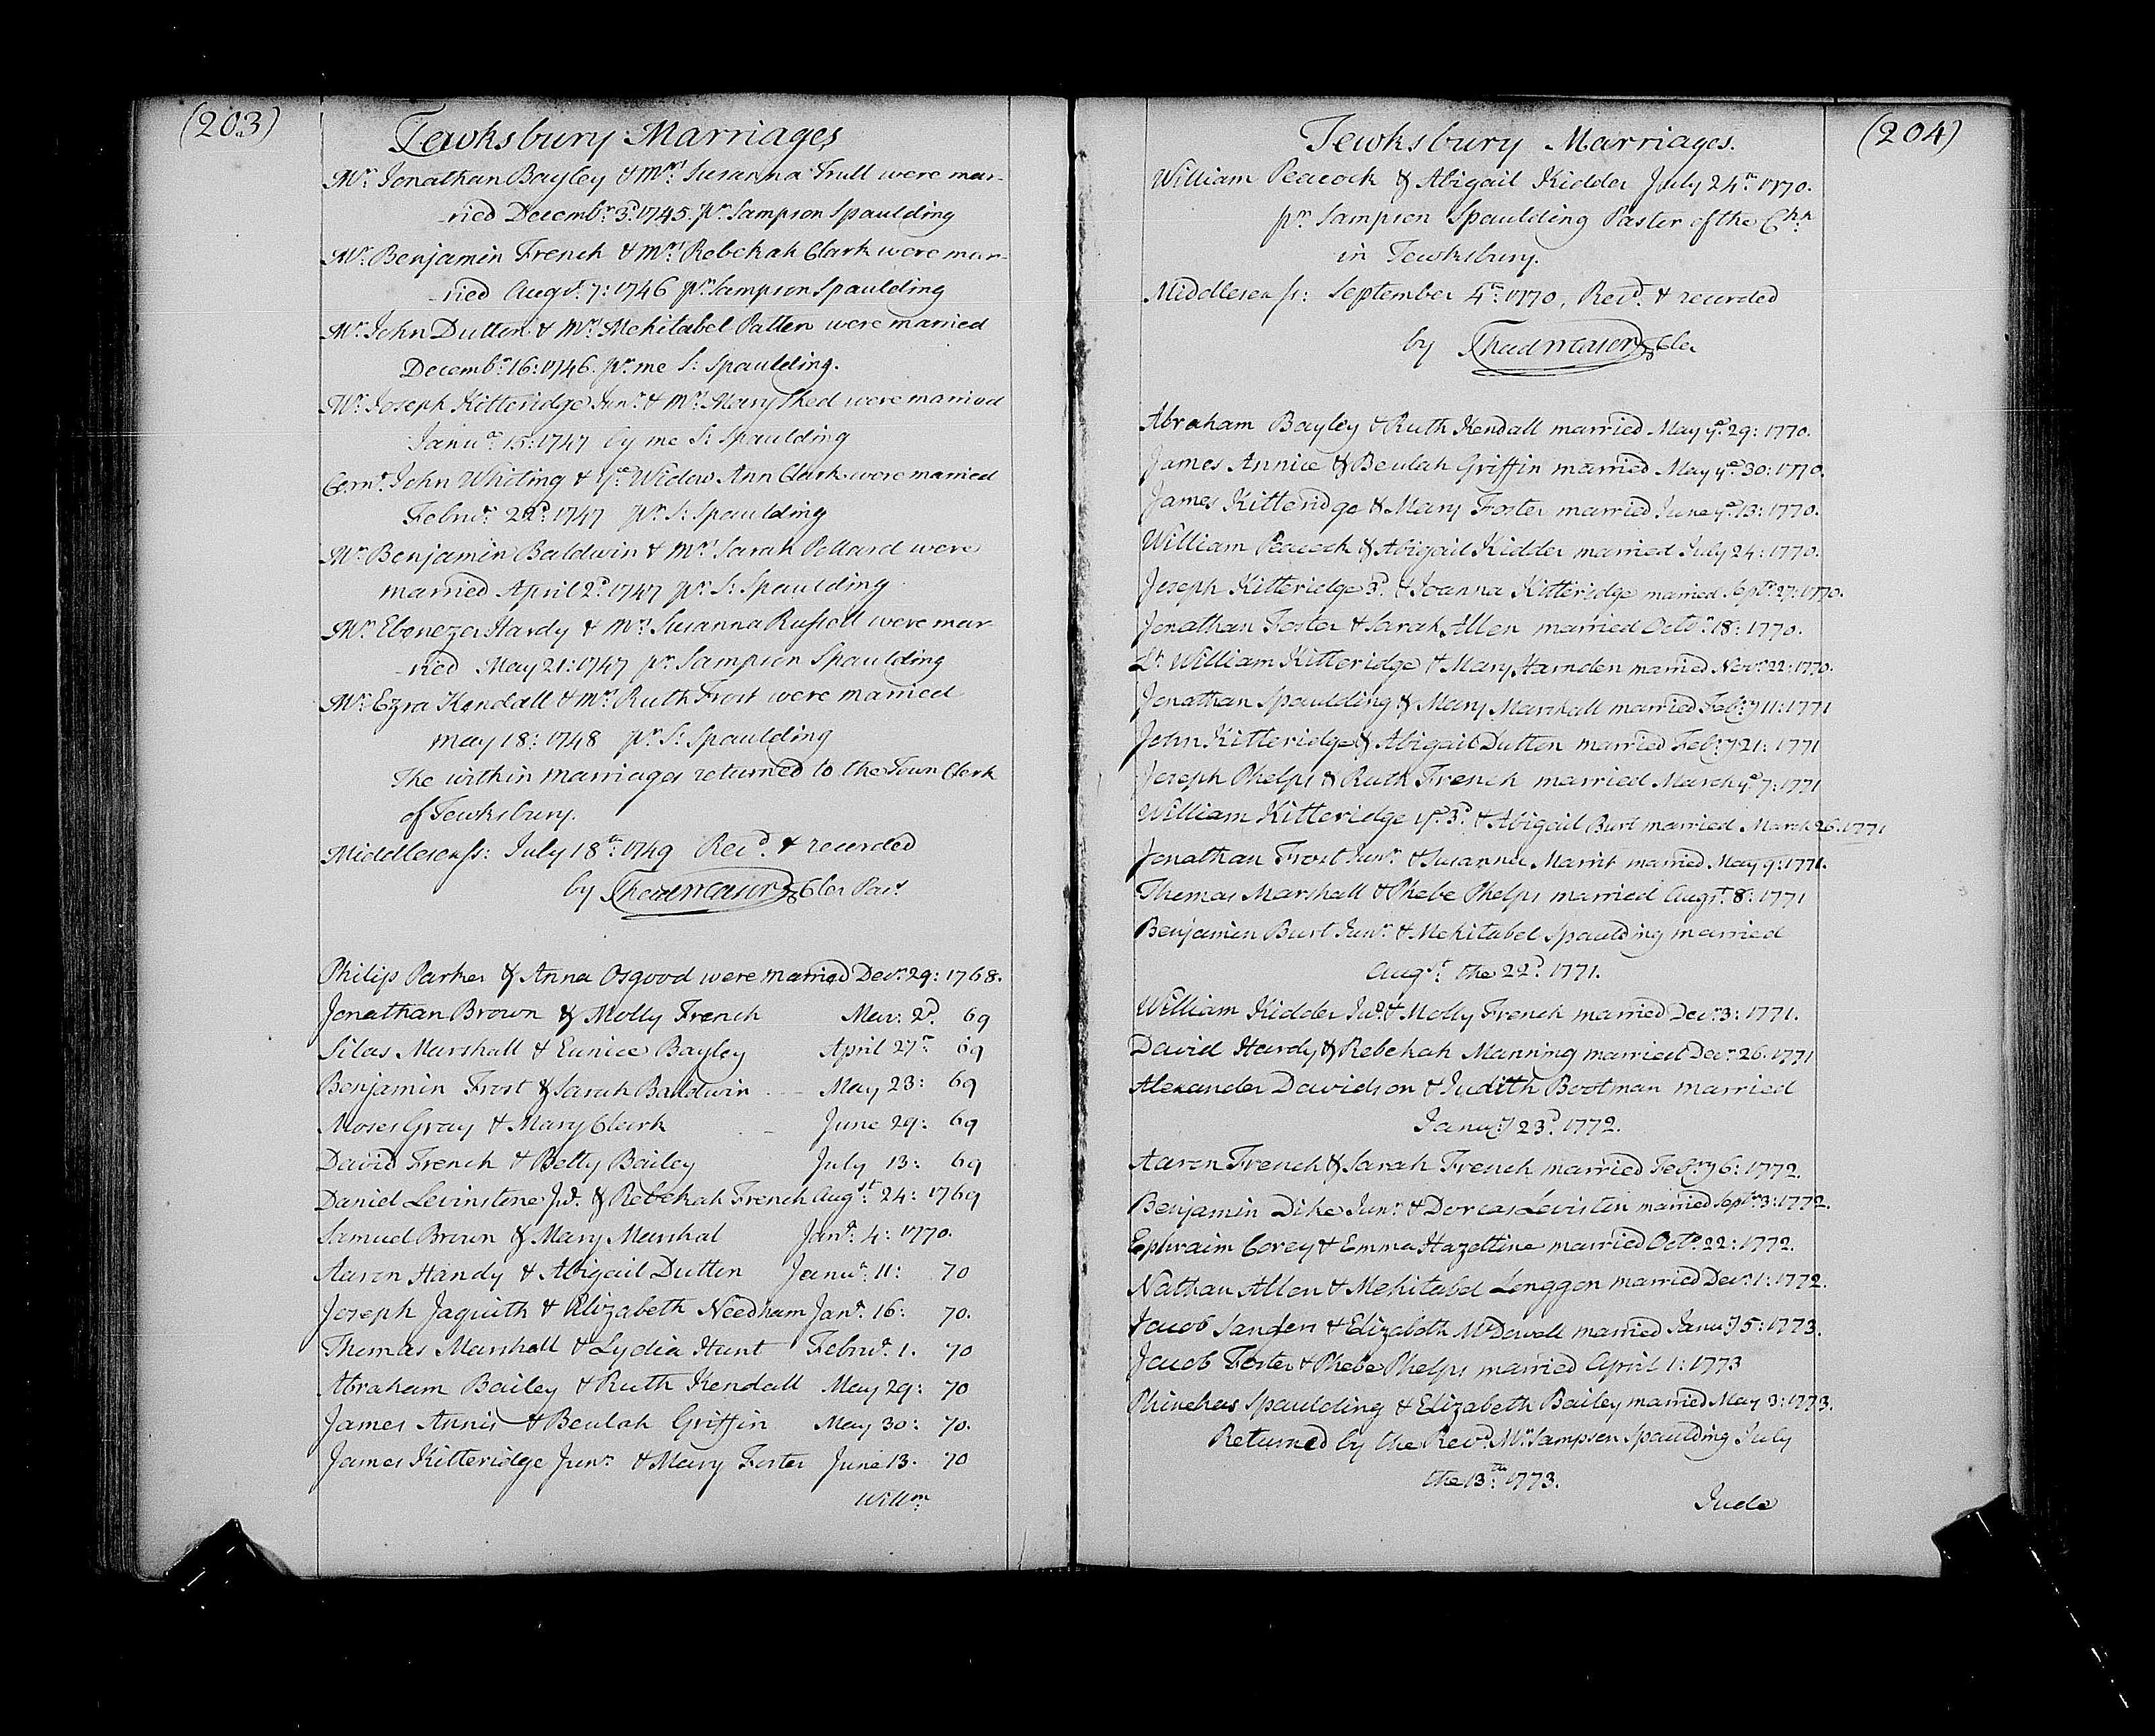 (203)
Tewksbury Marriages
Mr. Jonathan Bayley & Mrs. Susanna Trull were mar-
ried Decembr. 3d. 1745. pr. Sampson Spaulding
Mr. Benjamin French & Mrs. Rebekah Clark were mar-
ried Augst. 7: 1746 pr. Sampson Spaulding
Mr. John Dutton & Mrs. Mehitabel Patten were married
Decembr. 16: 1746. pr. me S: Spaulding.
Mr. Joseph Kitteridge Junr. & Mrs. Mary Shed were married
Janua. 15: 1747 by me S: Spaulding
Cornt. John Whiting & ye. Widow Ann Clark were married
Febru. 22d. 1747 pr. S: Spaulding
Mr. Benjamin Baldwin & Mrs. Sarah Pollard were
married April 2d. 1747 pr. S: Spaulding
Mr. Ebenezer Hardy & Mrs. Susanna Russell were mar-
ried May 21: 1747 pr. Sampson Spaulding
Mr. Ezra Kendall & Mrs. Ruth Frost were married
May 18: 1748 pr. S: Spaulding
The within marriages returned to the Town Clerk
of Tewksbury.
Middlesex ss: July 18th. 1749 Recd. & recorded
by Thad Mason Cler Pacs
Philip Parker & Anna Osgood were married Decr. 29: 1768.
Jonathan Brown & Molly French Mar: 2d. 69
Silas Marshall & Eunice Bayley April 27th: 69
Benjamin Frost & Sarah Baldwin -- May 23: 69
Moses Gray & Mary Clark -- June 29: 69
David French & Betty Bailey July 13: 69
Daniel Levinstone Jr. & Rebekah French Augst. 24: 1769
Samuel Brown & Mary Marshal Jana. 4: 1770.
Aaron Handy & Abigail Dutton Janua. 11: 70
Joseph Jaquith & Elizabeth Needham Jana. 16: 70.
Thomas Marshall & Lydia Hunt Februa. 1. 70
Abraham Bailey & Ruth Kendall May 29: 70
James Annis & Beulah Griffin May 30: 70.
James Kitteridge Junr. & Mary Foster June 13. 70
Willm.
(204)
Tewksbury Marriages.
William Peacock & Abigail Kidder July 24th. 1770.
pr. Sampson Spaulding Pastor of the Chh
in Tewksbury.
Middlesex ss: September 4th. 1770, Recd. & recorded
by Thad Mason Cler
Abraham Bayley & Ruth Kendall married May ye. 29: 1770.
James Annice & Beulah Griffin married May ye. 30: 1770.
James Kitteridge & Mary Foster married June ye. 13: 1770.
William Peacock & Abigail Kidder married July 24: 1770.
Joseph Kitteridge 3d. & Joanna Kitteridge married Septr. 27: 1770.
Jonathan Foster & Sarah Allen married Octor. 18: 1770.
Lt. William Kitteridge & Mary Harnden married Novr. 22: 1770.
Jonathan Spaulding & Mary Marshall married Feby. 11: 1771
John Kitteridge & Abigail Dutton married Feby. 21: 1771
Joseph Phelps & Ruth French married March ye. 7: 1771
William Kitteridge ye. 3d. & Abigail Burt married March 26. 1771
Jonathan Frost Junr. & Susanna Marrit married May 9: 1771.
Thomas Marshall & Phebe Phelps married Augst. 8: 1771
Benjamin Burt Junr. & Mehitabel Spaulding married
Augst. the 22d. 1771.
William Kidder Jur. & Molly French married Decr. 3: 1771.
David Hardy & Rebekah Manning married Decr. 26. 1771
Alexander Davidson & Judith Bootman married
Janu:y 23d. 1772.
Aaron French & Sarah French married Feb:y 6: 1772.
Benjamin Dike Junr. & Dorcas Levistin married Septr. 3: 1772.
Ephraim Corey & Emma Hazeltine married Octo. 22: 1772.
Nathan Allen & Mehitabel Longgon married Decr. 1: 1772.
Jacob Sanders & Elizabeth McDowell married Janu:y 5: 1773.
Jacob Foster & Phebe Phelps married April 1: 1773
Phinehas Spaulding & Elizabeth Bailey married May 3: 1773.
Returned by the Revd. Mr. Sampson Spaulding July
the 13th. 1773.
Jude